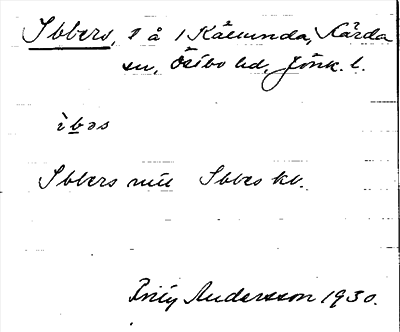 Ibbers, 1 å 1 Källunda, Kärda
sn, Östbo hd, Jönk. l.
ìbəs
Ibbers mtl Ibbes kb.
Andersson 1930.